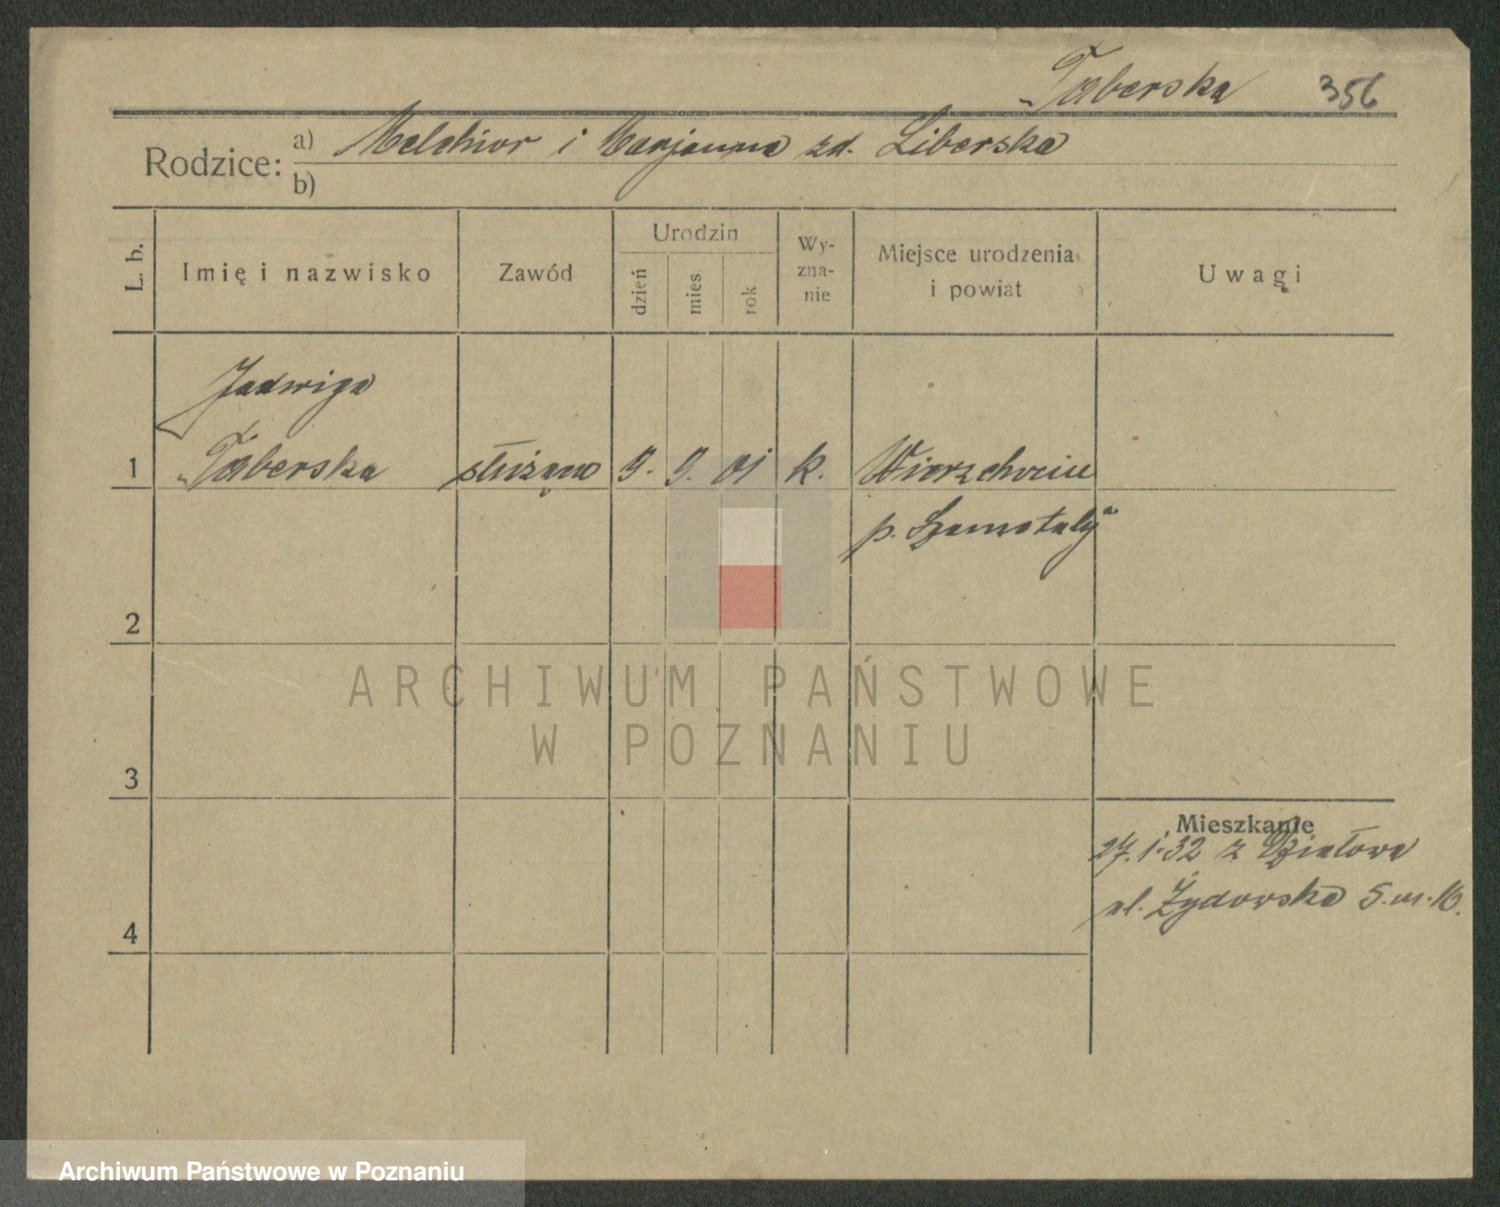 Taberska 356
Rodzice: a) Melchior i Marjanna zd. Liberska
b)
L. b.
Imię i nazwisko
Zawód
Urodzin
dzień
mies.
rok
Wy-
zna-
nie
Miejsce urodzenia
i powiat
Uwagi
Jadwiga
1 Taberska służąca 9. 9. 01 k.
p. Szamotuły
2
ARCHIWUM PAŃSTWOWE
W POZNANIU
3
Mieszkanie
27.1.32 z Działowa
4
ul. Żydowska 5. m. 16.
Archiwum Państwowe w Poznaniu